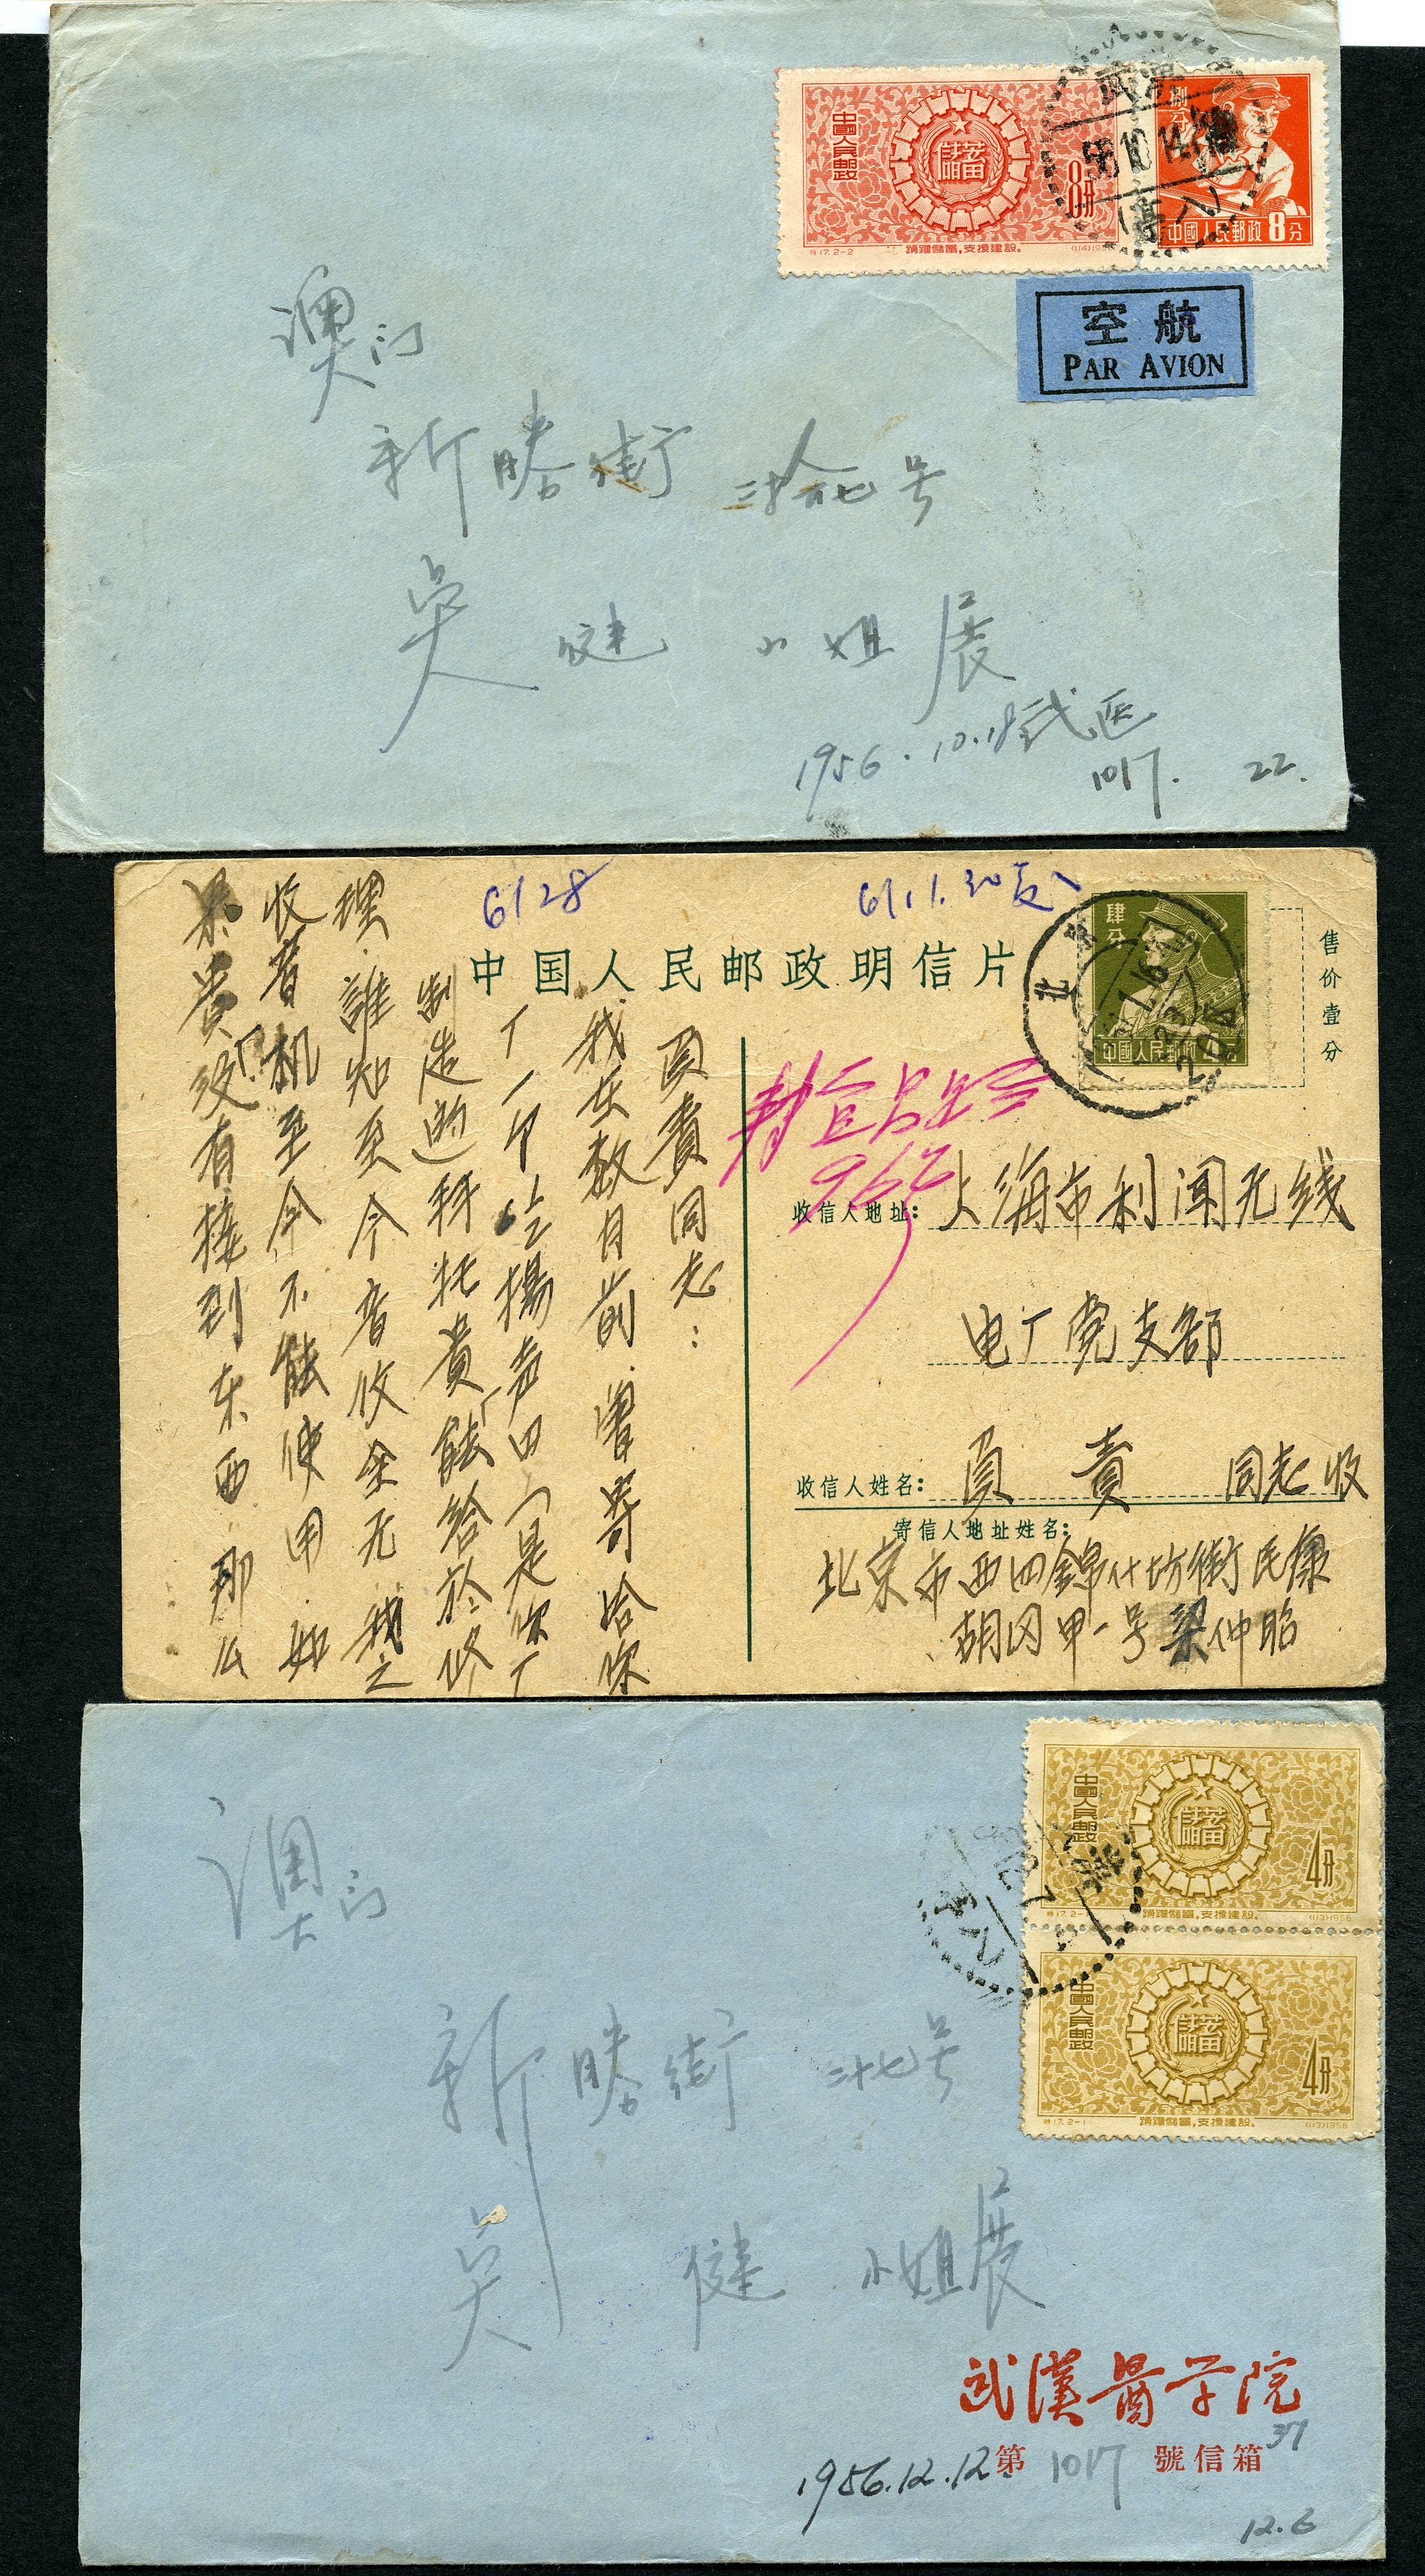 中國人民郵政
儲蓄
8分
特17.2-2
踴躍儲蓄,支援建設。
捌分
中國人民郵政 8分
56.10.14
空航
PAR AVION
澳门
新勝街 号
吴健 小姐 展
1956.10.18 武医
1017. 22.
6128
中国人民邮政明信片
肆分
中國人民郵政
北京
售价壹分
收信人地址: 上海市利闻无线
电厂党支部
收信人姓名: 負責 同志收
寄信人地址姓名:
北京市西四錦什坊街民康
胡同甲一号梁仲昭
負責同志:
我在数月前曾寄给你
厂一个 揚声四(是你厂
制造的)拜托貴厂能给於修
理.誰知至今音收全无我之
收音机至今不能使用.如
果貴厂没有接到东西那么
中國人民郵政
儲蓄
4分
特17.2-1
踴躍儲蓄,支援建設。
中國人民郵政
儲蓄
4分
特17.2-1
踴躍儲蓄,支援建設。
澳门
新勝街 二十七号
吴健 小姐展
武漢醫学院
第 1017 號信箱 37
1956.12.12.
12.6